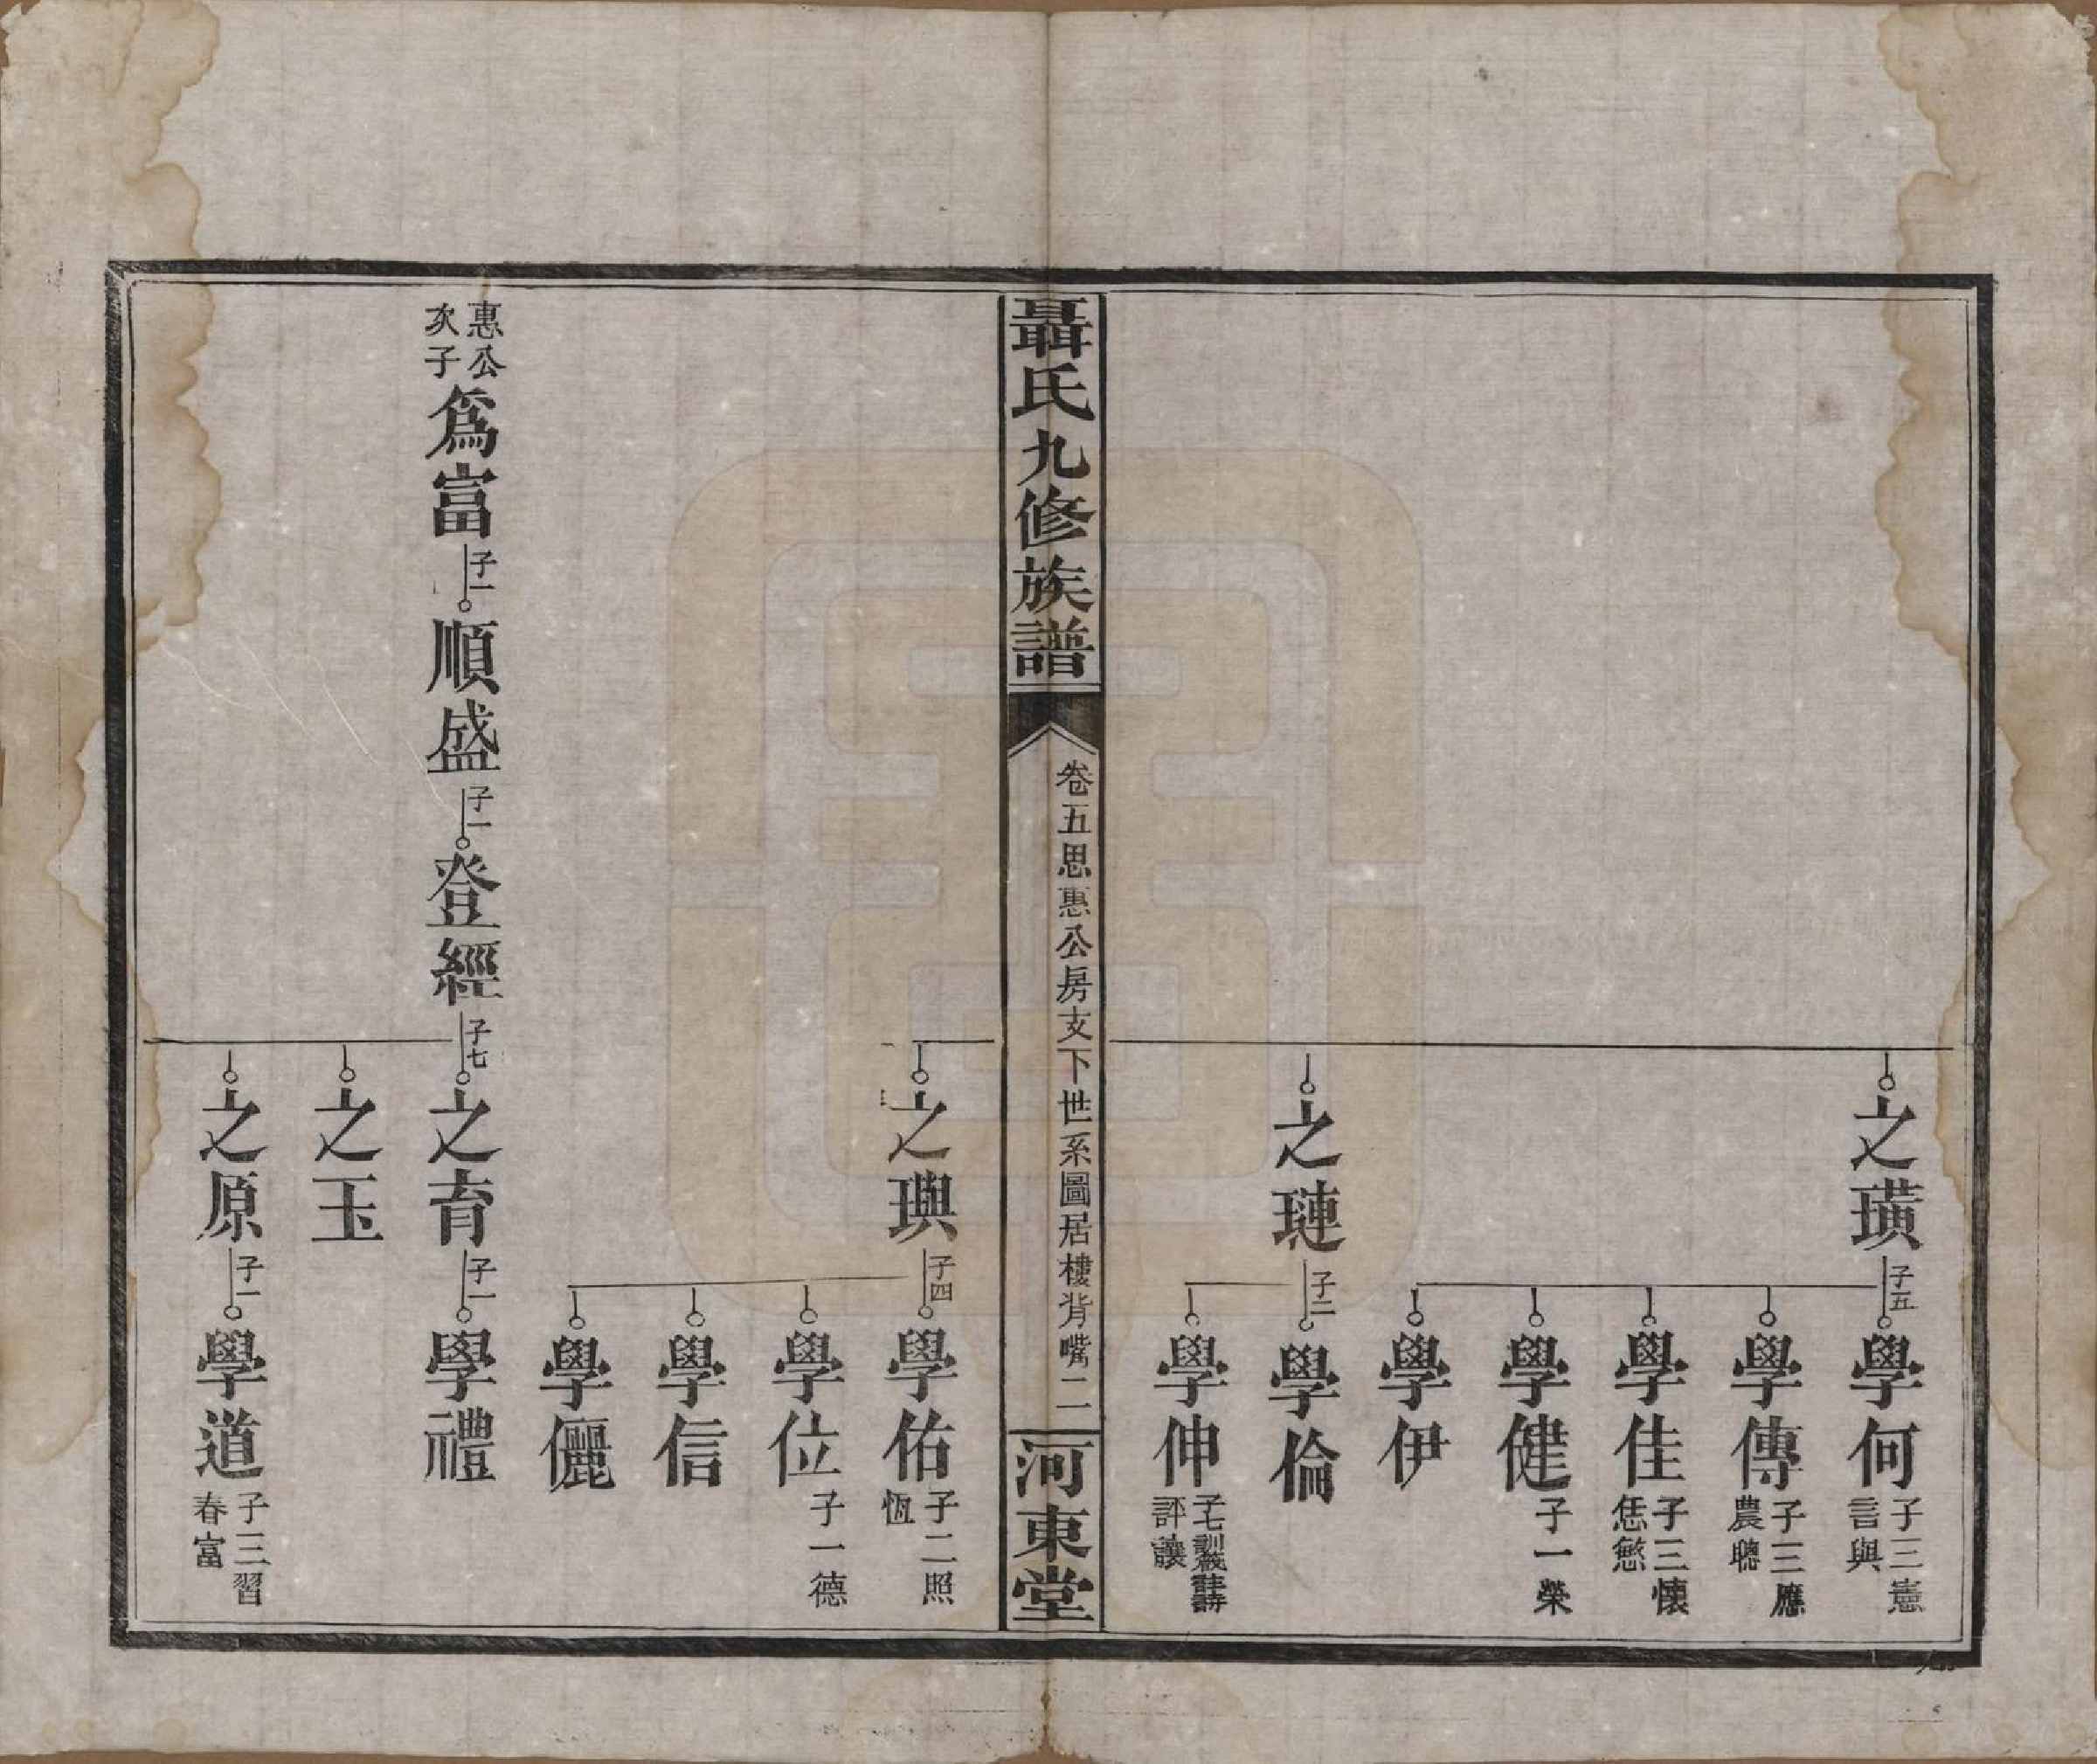 之璜
子五
學何
子三憲
言與
學傳
子三應
農聰
學佳
子三懷
恁慜
學健
子一榮
學伊
之璉
子二
學倫
學伸
評讓
聶氏九修族譜
卷五思惠公房支下世系圖居樓背嘴
二
河東堂
之璵
子四
學佑
子二照
恆
學位
子一德
學信
學儷
惠公
次子
爲富
子一
順盛
子一
登經
子七
之育
子一
學禮
之玉
之原
子一
學道
子三習
春富